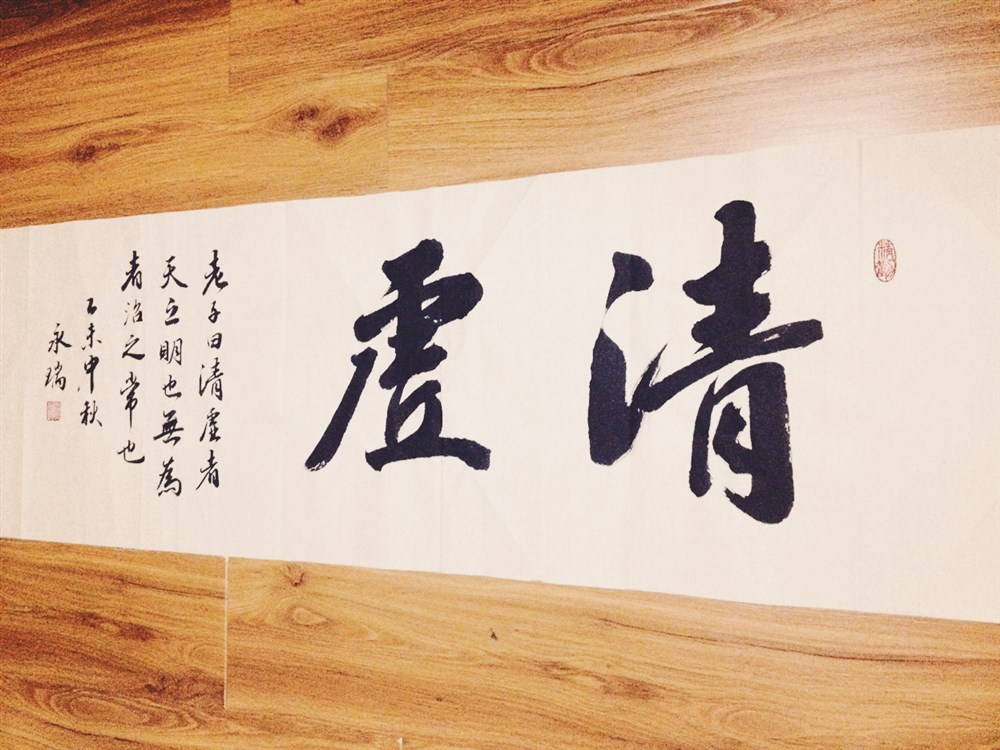 清虚
老子曰清虚者
天之明也無為
者治之常也
乙未中秋
永瑞